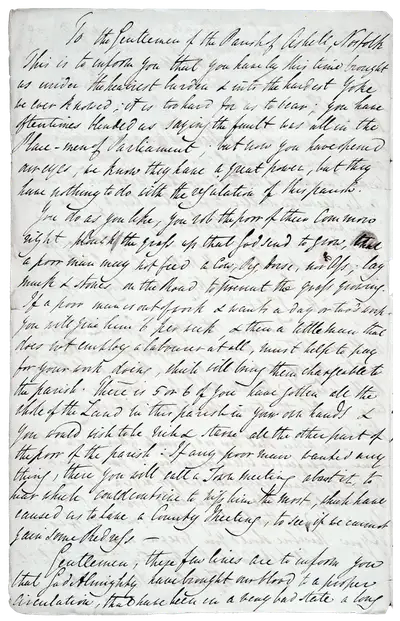 To the Gentlemen of the Parish of Ashill, Norfolk
This is to inform you that you have by this time brought
us under the heaviest burden & into the hardest Yoke
we ever knowed; it is too hard for us to bear; you have
often times blinded us saying the fault was all in the
Place-men of Parliament; but now you have opened
our eyes, we know they have a great power, but they
have nothing to do with the regulation of this parish.
You do as you like, you rob the poor of their Common
right, plough the grass up that God send to grow, that
a poor man may not feed a Cow, Pig, Horse, nor Ass; lay
muck & stones on the Road to prevent the grass growing.
If a poor man is out of work & wants a day or two's work
you will give him 6 per week & then a little man that
does not employ a labourer at all, must help to pay
for your work doing, which will bring them chargeable to
the parish. There is 5 or 6 of you have gotten all the
whole of the Land in this parish in your own hands &
you would wish to be rich & starve all the other part of
the poor of the parish: If any poor man wanted any
thing, then you will call a Town meeting about it, to
hear which could contrive to hiss him the most, which have
caused us to have a County Meeting, to see if we cannot
gain some Redress —
Gentlemen, these few lines are to inform you
that God Almighty have brought our blood to a proper
circulation, that have been in a very bad state a long